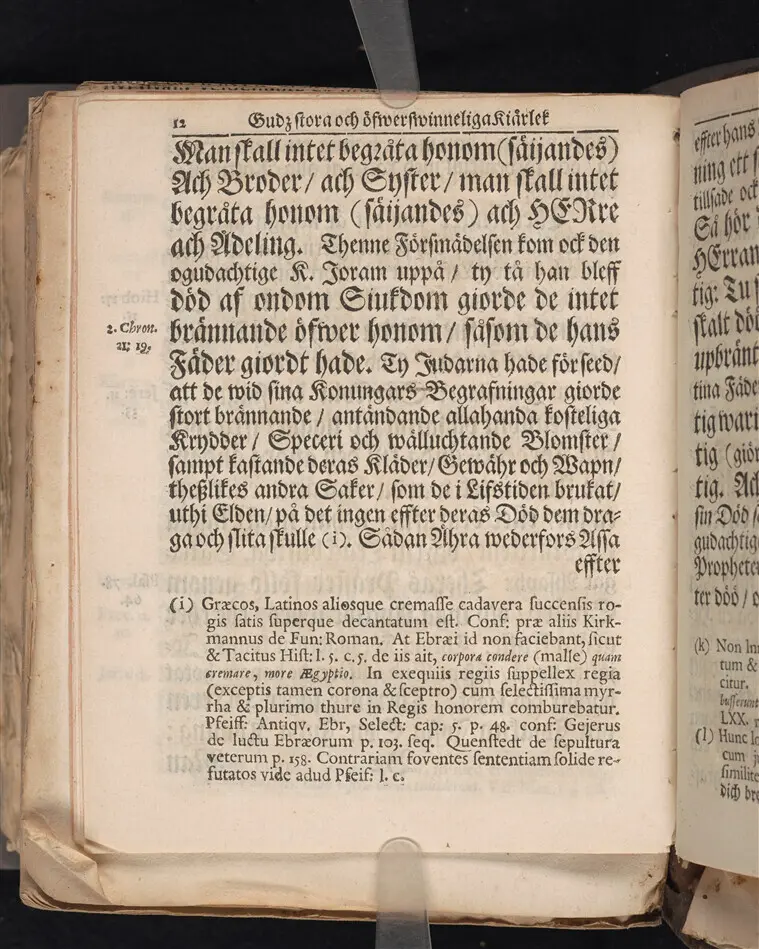 12 Gudz stora och öfwerswinneliga Kiärlek
Man skall intet begråta honom (säijandes)
Ach Broder / ach Syster / man skall intet
begråta honom (säijandes) ach HERre
ach Ädeling. Thenne Försmädelsen kom ock den
ogudachtige K. Joram uppå / ty tå han bleff
död af ondom Siukdom giorde de intet
2. Chron. brännande öfwer honom / såsom de hans
21; 19. Fäder giordt hade. Ty Judarna hade för seed /
att de wid sina Konungars Begrafningar giorde
stort brännande / antändande allahanda kosteliga
Krydder / Speceri och wälluchtande Blomster /
sampt kastande deras Kläder / Gewähr och Wapn /
theßlikes andra Saker / som de i Lifstiden brukat /
uthi Elden / på det ingen effter deras Död dem dra-
ga och slita skulle (i). Sådan Ähra wederfors Assa
effter
(i) Græcos, Latinos aliosque cremasse cadavera succensis ro-
gis satis superque decantatum est. Conf: præ aliis Kirk-
mannus de Fun: Roman. At Ebræi id non faciebant, sicut
& Tacitus Hist: l. 5. c. 5. de iis ait, corpora condere (malle) quam
cremare, more Ægyptio. In exequiis regiis suppellex regia
(exceptis tamen corona & sceptro) cum selectissima myr-
rha & plurimo thure in Regis honorem comburebatur.
Pfeiff: Antiqv. Ebr, Select: cap: 5. p. 48. conf: Gejerus
de luctu Ebræorum p. 103. seq. Quenstedt de sepultura
veterum p. 158. Contrariam foventes sententiam solide re-
futatos vide adud Pfeif: l. c.
effter hans
ning ett
tillsade ock
Så hör
HErran
tig: Tu
skalt dö
upbränt
tina Fäde
tig wari
tig (giör
tig. Ach
sin Död
gudachtig
Prophete
ter döö /
(k) Non
tum &
citur.
busserunt
LXX.
(l) Hunc
cum
similite
dich